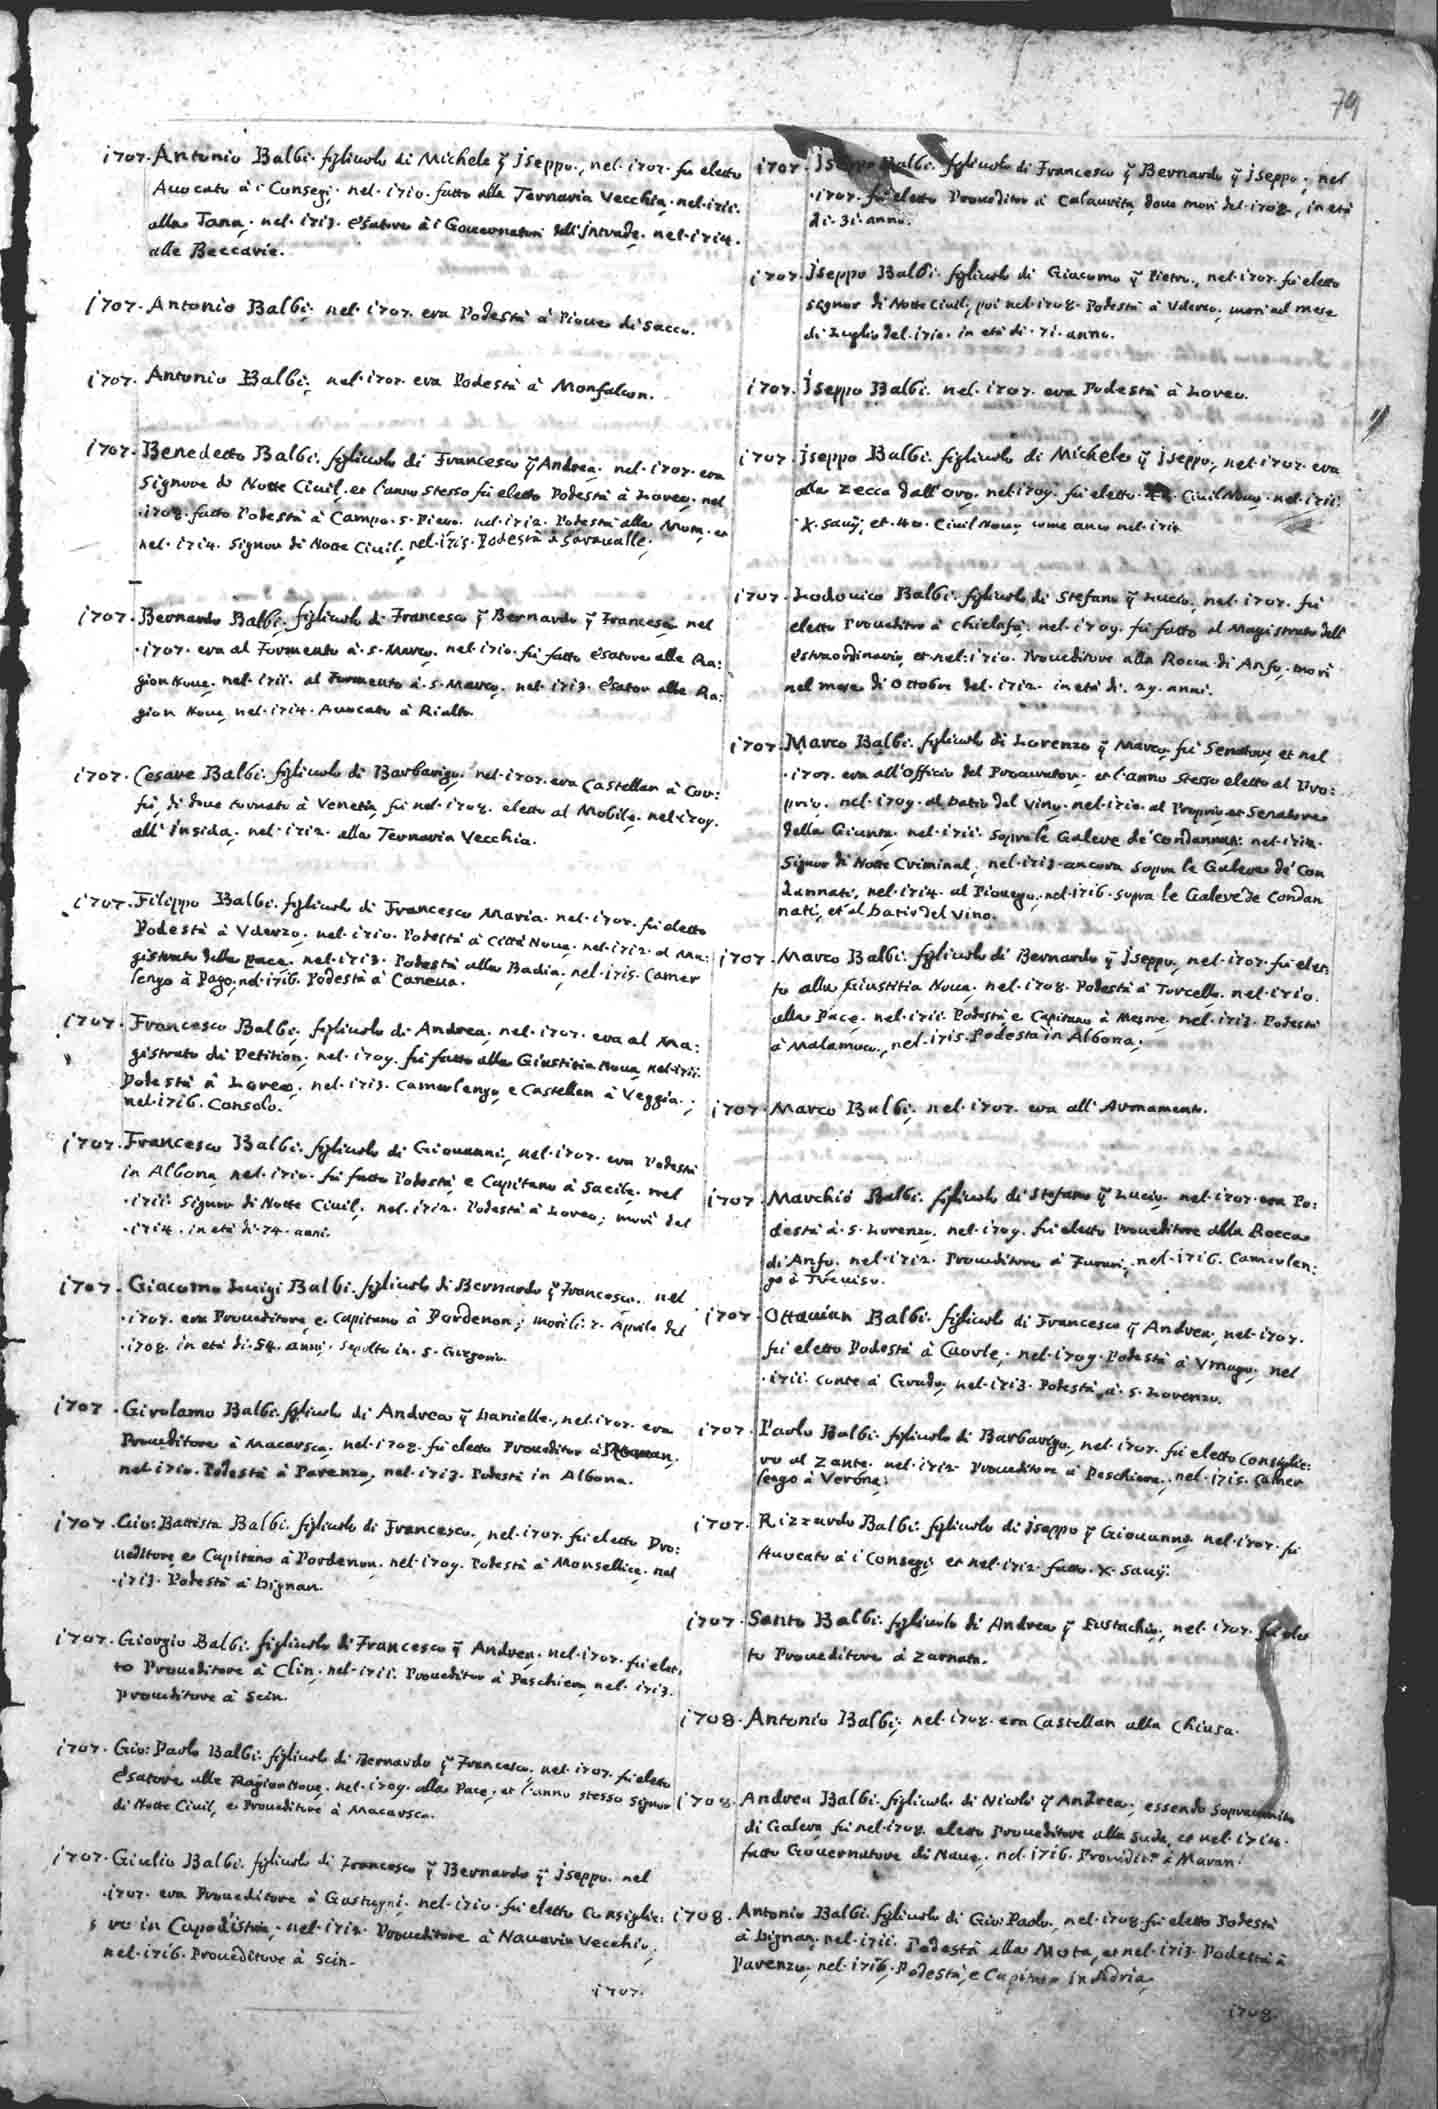 79
1707. Antonio Balbi. figliuolo di Michele q̃ Jseppo., nel. 1707. fù eletto
Auocato à i Consegi; nel. 1710. fatto alla Ternaria Vecchia, nel. 1711.
alla Tana, nel. 1713. Esatore à i Gouernatori dell'Intrade, nel. 1714.
alle Beccarie.
1707. Antonio Balbi, nel. 1707. era Podestà à Pioue di Sacco.
1707. Antonio Balbi, nel. 1707. era Podestà à Monfalcon.
1707. Benedetto Balbi. figliuolo di Francesco q̃ Andrea, nel. 1707. era
Signore di Notte Ciuil, et l'anno stesso fù eletto Podestà à Loreo, nel
.1708. fatto Podestà à Campo. S. Piero. nel. 1712. Podestà alla Mota, et
nel. 1714. Signor di Notte Ciuil, nel. 1715. Podestà à Sarauralle.
1707. Bernardo Balbi, figliuolo di Francesco q̃ Bernardo q̃ Francesco nel
.1707. era al Formento à. S. Marco, nel. 1710. fù fatto Esatore alle Ra:
gion Noue, nel. 1711. al Formento à. S. Marco, nel. 1713. Esator alle Ra:
gion Noue, nel. 1714. Auocato à Rialto.
1707. Cesare Balbi. figliuolo di Barbarigo, nel. 1707. era Castellan à Cor:
fù, di doue tornato à Venetia, fù nel. 1708. eletto al Mobile, nel 1709.
all' Insida, nel. 1712. alla Ternaria Vecchia.
1707. Filippo Balbi. figliuolo di Francesco Maria. nel. 1707. fù eletto
Podestà à Vderzo, nel. 1710. Podestà à Città Noua, nel. 1712. al Ma:
gistrato della pace, nel. 1713. Podestà alla Badia, nel. 1715. Camer
lengo à Pago, nel. 1716. Podestà à Caneua.
1707. Francesco Balbi, figliuolo di Andrea, nel. 1707. era al Ma:
gistrato di Petition, nel. 1709. fù fatto alla Giustitia Noua, nel. 1711.
Podestà à Loreo, nel. 1713. Camerlengo, e Castellan à Veggia.;
nel. 1716. Consolo.
1707. Francesco Balbi. figliuolo di Giouanni, nel. 1707. era Podestà
in Albona, nel. 1710. fù fatto Podestà, e Capitano à Sacile, nel
.1711. Signor di Notte Ciuil, nel. 1712. Podestà à Loreo; morì del
.1714. in età di. 74. anni.
1707. Giacomo Luigi Balbi. figliuolo di Bernardo q̃ Francesco. nel
.1707. era Proueditore, e Capitano à Pordenon; morì li. 7. Aprile del
.1708. in età di. 54. anni, sepolto in. S. Gregorio.
1707. Girolamo Balbi. figliuolo di Andrea q̃ Danielle., nel. 1707. era
Proueditore à Macarsca, nel. 1708. fù eletto Proueditor à
nel. 1710. Podestà à Parenzo, nel. 1713. Podestà in Albona.
1707. Gio: Battista Balbi. figliuolo di Francesco, nel. 1707. fù eletto Pro:
ueditore, e Capitano à Pordenon, nel. 1709. Podestà à Monselice, nel
.1713. Podestà à Dignan.
1707. Giorgio Balbi. figliuolo di Francesco q̃ Andrea, nel. 1707. fù elet:
to Proueditore à Clin, nel. 1711. Proueditor à Peschiera, nel. 1713.
Proueditore à Scin.
1707. Gio: Paolo Balbi. figliuolo di Bernardo q̃ Francesco. nel. 1707. fù eletto
Esatore alle Ragion Noue, nel. 1709. alla Pace, et l'anno stesso Signor
di Notte Ciuil, e Proueditore à Macarsca.
1707. Giulio Balbi. figliuolo di Francesco q̃ Bernardo q̃ Jseppo. nel
.1707. era Proueditore à Gastugni. nel. 1710. fù eletto Consiglie:
ro in Capodistria, nel. 1712. Proueditore à Nauarin Vecchio,
nel. 1716. Proueditore à Scin.
1707.
1707. Jseppo Balbi. figliuolo di Francesco q̃ Bernardo q̃ Jseppo., nel
.1707. fù eletto Proueditor à Calaurita, doue morì del. 1708, in età
di. 31. anno.
1707. Jseppo Balbi. figliuolo di Giacomo q̃ Pietro., nel. 1707. fù eletto
Signor di Notte Ciuil, poi nel. 1708. Podestà à Vderzo, morì nel mese
di Luglio del. 1710. in età di. 71. anno.
1707. Jseppo Balbi. nel. 1707. era Podestà à Loreo.
1707. Jseppo Balbi. figliuolo di Michele q̃ Jseppo, nel. 1707. era
alla Zecca dall'Oro. nel. 1709. fù eletto Ciuil Nouo, nel. 1711.
X. Sauij, et. 40. Ciuil Nouo, come anco nel. 1714
1707. Lodouico Balbi. figliuolo di Stefano q̃ Lucio, nel. 1707. fù
eletto Proueditor à Chielafà, nel. 1709. fù fatto al Magistrato dell'
Estraordinario, et nel. 1710. Proueditore alla Rocca di Anfo, morì
nel mese di Ottobre del. 1712. in età di. 29. anni.
1707. Marco Balbi. figliuolo di Lorenzo q̃ Marco, fù Senatore, et nel
.1707. era all'Officio del Procurator, et l'anno stesso eletto al Pro:
prio. nel. 1709. al Datio del Vino, nel. 1710. al Proprio et Senatore
della Giunta, nel. 1711. sopra le Galere de' Condannati; nel. 1712.
Signor di Notte Criminal, nel. 1713. ancora sopra le Galere de' Con
dannati, nel. 1714. al Piouego, nel. 1716. sopra le Galere de Condan
nati, et al Datio del Vino.
1707. Marco Balbi. figliuolo di Bernardo q̃ Jseppo, nel. 1707. fù elet
to alla Giustitia Noua, nel. 1708. Podestà à Torcello. nel. 1710.
alla Pace, nel. 1711. Podestà e Capitano à Mestre, nel. 1713. Podestà
à Malamoco, nel. 1715. Podestà in Albona;
1707. Marco Balbi, nel. 1707. era all' Armamento.
1707. Marchiò Balbi. figliuolo di Stefano q̃ Lucio, nel. 1707. era Po:
destà à. S. Lorenzo, nel. 1709. fù eletto Proueditore alla Rocca
di Anfo, nel. 1712. Proueditore à Zunari, nel. 1716. Camerlen:
go à Treuiso.
1707. Ottauian Balbi. figliuolo di Francesco q̃ Andrea, nel. 1707.
fù eletto Podestà à Caorle, nel. 1709. Podestà à Vmago, nel
.1711. Conte à Grado, nel. 1713. Podestà à. S. Lorenzo.
1707. Paolo Balbi. figliuolo di Barbarigo, nel. 1707. fù eletto Consiglie:
ro al Zante. nel. 1712. Proueditore à Peschiera, nel. 1715. Camer
lengo à Verona;
1707. Rizzardo Balbi. figliuolo di Jseppo q̃ Giouanni, nel. 1707. fù
Auocato à i Consegi, et nel. 1712. fatto. X. Sauij.
1707. Santo Balbi. figliuolo di Andrea q̃ Eustachio, nel. 1707. fù elet
to Proueditore à Zarnata.
1708. Antonio Balbi, nel. 1708. era Castellan alla Chiusa.
1708. Andrea Balbi. figliuolo di Nicolò q̃ Andrea, essendo Sopracomito
di Galera, fù nel. 1708. eletto Proueditore alla Suda, et nel. 1714.
fatto Gouernatore di Naue, nel. 1716. Prouidit.r à Maran.
1708. Antonio Balbi. figliuolo di Gio: Paolo, nel. 1708. fù eletto Podestà
à Dignan, nel. 1711. Podestà alla Mota, et nel. 1713. Podestà à
Parenzo, nel. 1716. Podestà, e Capitano in Adria,
1708.